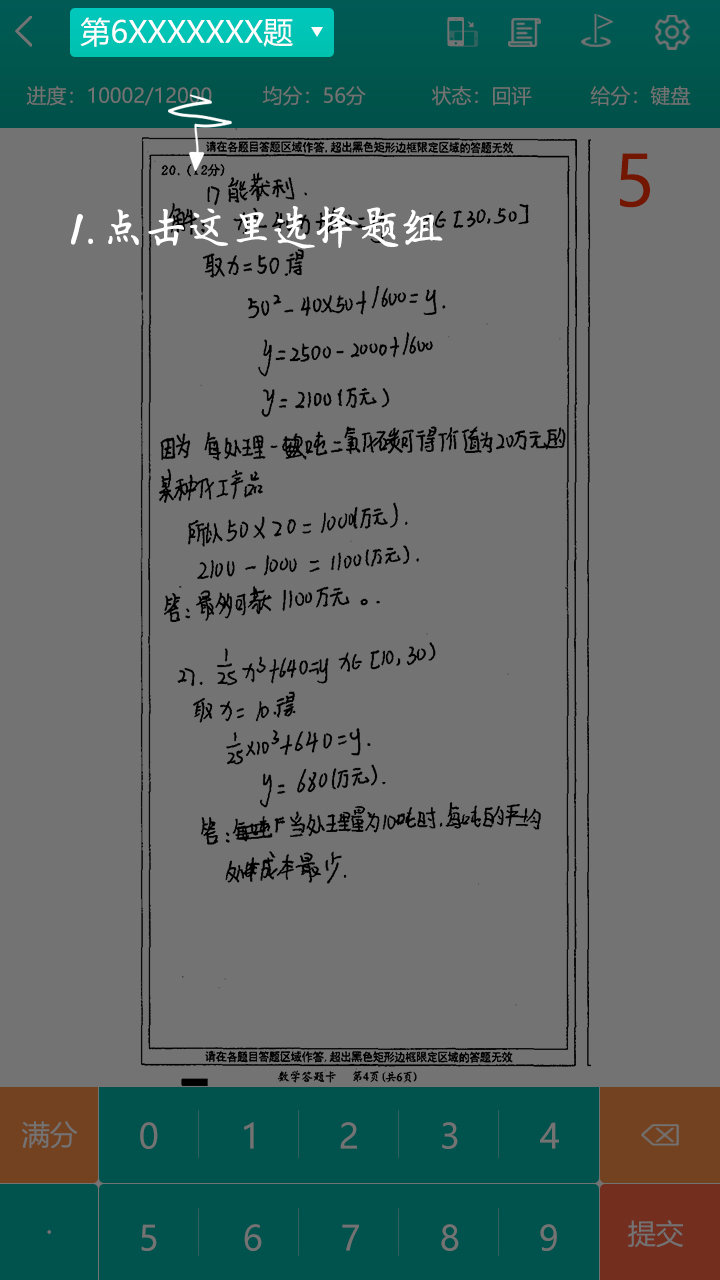 第6XXXXXXX题
进度：10002/12000 均分：56分 状态：回评 给分：键盘
请在各题目答题区域作答，超出黑色矩形边框限定区域的答题无效
5
20.（12分）
1）能获利．
1.点击这里选择题组
∈[30,50]
取x=50得
50²-40×50+1600=y.
y=2500-2000+1600
y=2100(万元)
因为 每处理一吨二氧化碳可得价值为20万元的
某种化工产品
所以50×20=1000(万元).
2100-1000=1100(万元).
答：最多可获1100万元。.
2). 1/25x³+640=y x∈[10,30)
取x=10.得
1/25×10³+640=y.
y=680(万元).
答：当处理量为10吨时，每吨的平均
成本最少.
请在各题目答题区域作答，超出黑色矩形边框限定区域的答题无效
数学答题卡 第4页(共6页)
满分 0 1 2 3 4
. 5 6 7 8 9 提交